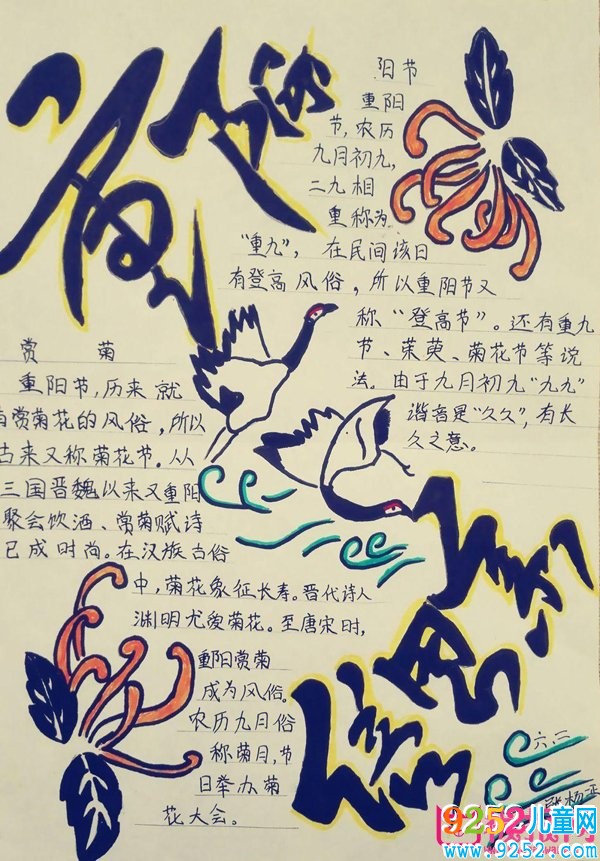 重阳
阳节
重阳
节,农历
九月初九,
二九相
重称为
"重九", 在民间该日
有登高风俗,所以重阳节又
称"登高节"。还有重九
节、茱萸、菊花节等说
法。由于九月初九"九九"
谐音是"久久",有长
久之意。
赏 菊
重阳节,历来就
有赏菊花的风俗,所以
古来又称菊花节。从
三国晋魏以来又重阳
聚会饮酒、赏菊赋诗
已成时尚。在汉族古俗
中,菊花象征长寿。晋代诗人
渊明尤爱菊花。至唐宋时,
重阳赏菊
成为风俗。
农历九月俗
称菊月,节
日举办菊
花大会。
倍思亲
六.二
杨
9252儿童网
www.9252.com